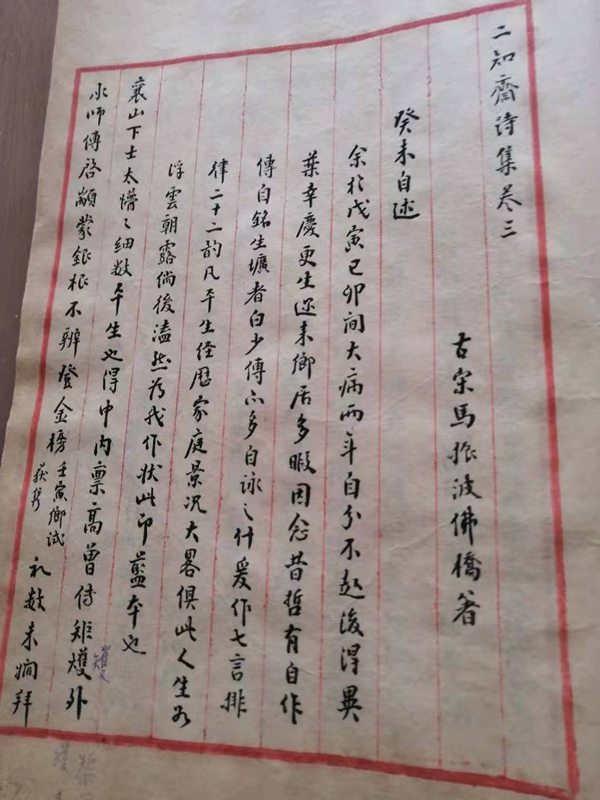 二知齋诗集卷三
古宋馬振波佛橋著
癸未自述
余於戊寅己卯间大病两年自分不起後得異
藥幸慶更生迩来鄉居多暇因念昔哲有自作
傳自銘生壙者白少傅亦多自詠之什爰作七言排
律二十二韵凡平生经歷家庭景况大畧俱此人生如
浮雲朝露倘後溘然為我作状此即藍本也
襄山下士太懵々细数平生也得中内禀高曾侍矩矱外
承师傅啓顓蒙銀根不辨登金榜壬寅鄉試获隽礼数未娴拜
矱